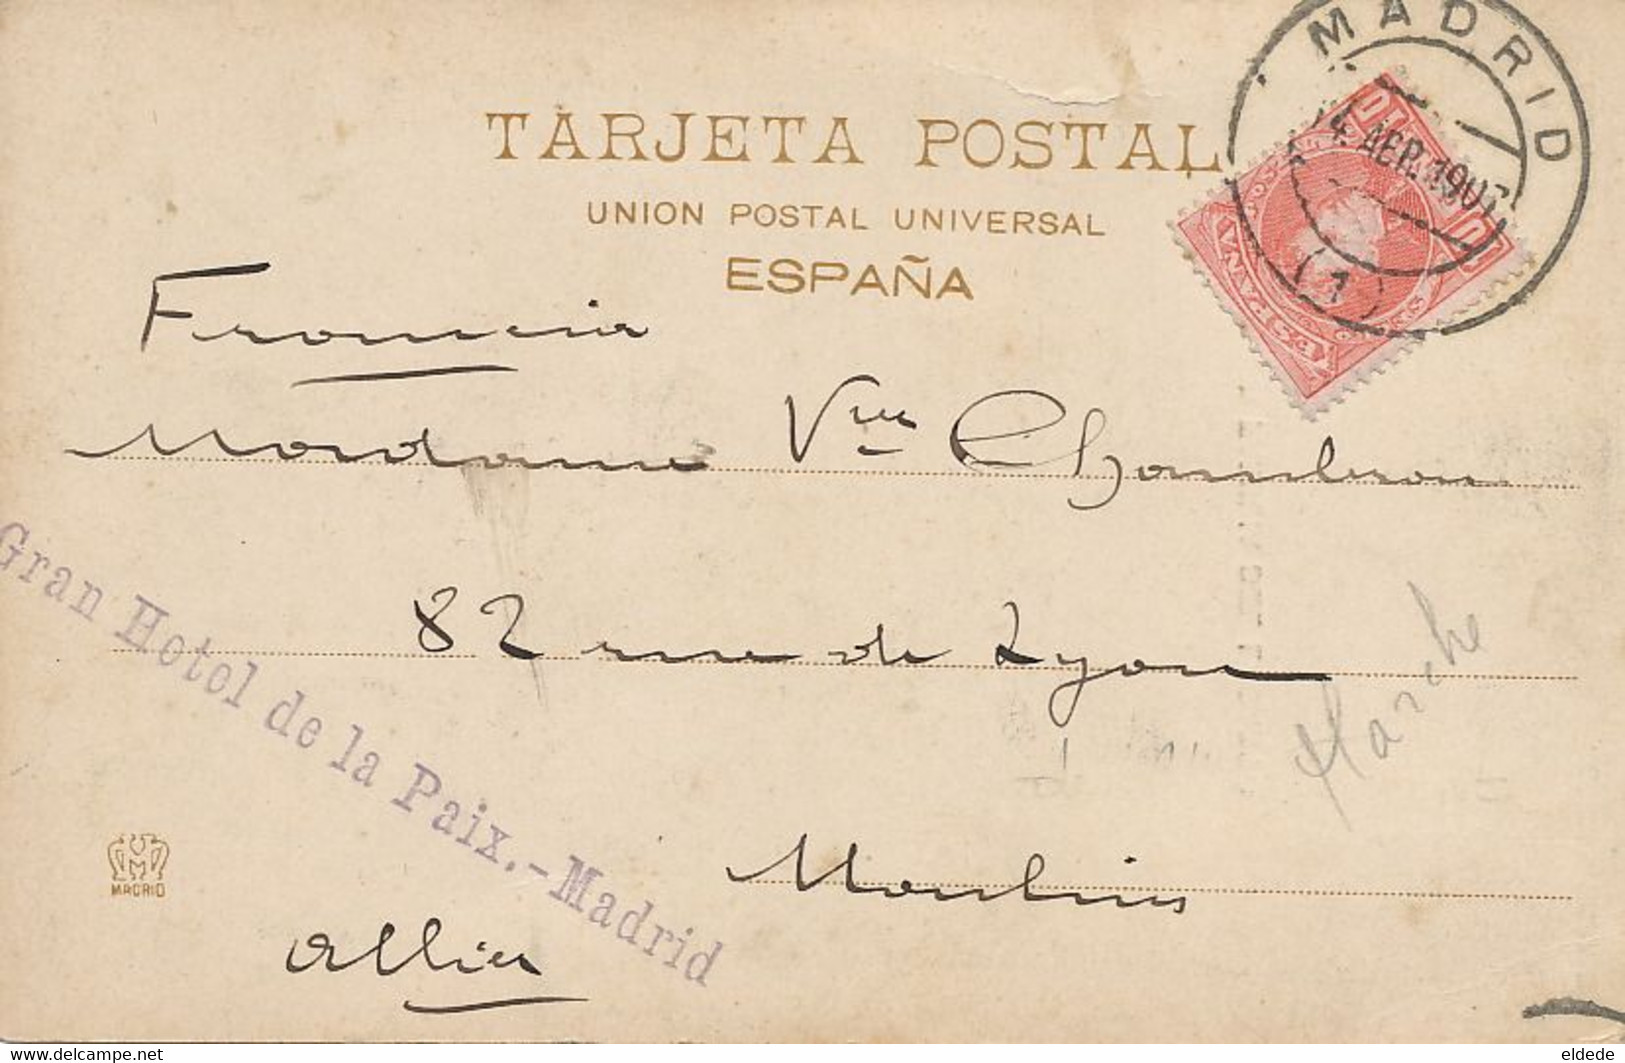 MADRID
4 ABR. 1907
(1)
TARJETA POSTAL
UNION POSTAL UNIVERSAL
ESPAÑA
ESPAÑA
Francia
Madame Vve Chambron
82 rue de Lyon
Gran Hotel de la Paix.-Madrid
Marche
Moulins
Allier
MADRID
https://www.delcampe.net
eldede